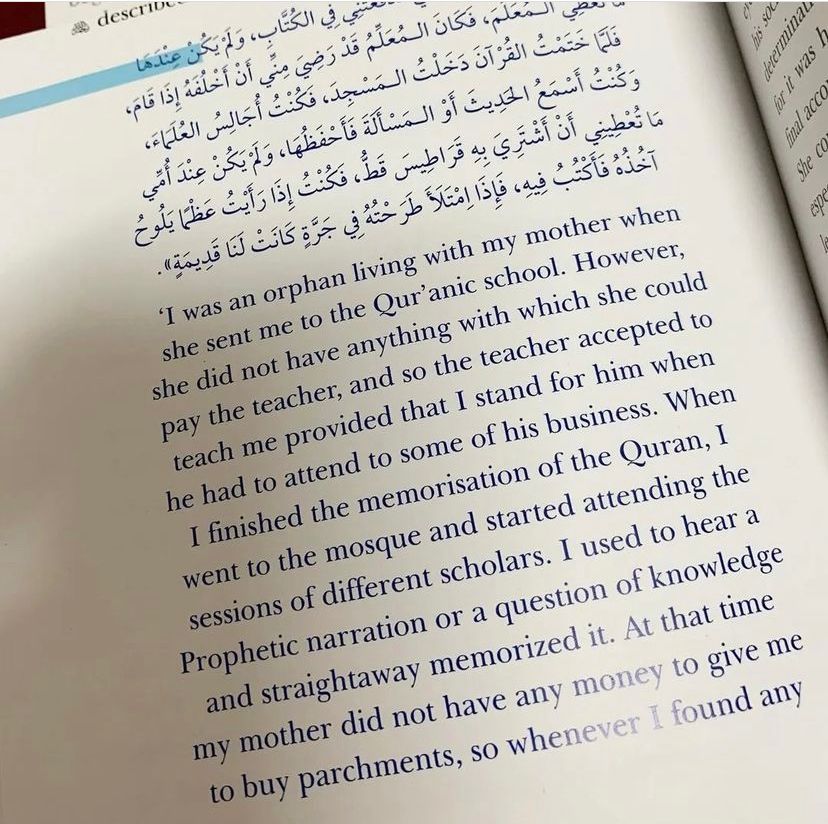 فِي الكُتَّابِ، وَلَمْ يَكُنْ عِنْدَهَا
مَا تُعْطِي الـمُعَلِّمَ، فَكَانَ الـمُعَلِّمُ قَدْ رَضِيَ مِنِّي أَنْ أَخْلُفَهُ إِذَا قَامَ،
فَلَمَّا خَتَمْتُ القُرْآنَ دَخَلْتُ الـمَسْجِدَ، فَكُنْتُ أُجَالِسُ العُلَمَاءَ،
وَكُنْتُ أَسْمَعُ الحَدِيثَ أَوْ الـمَسْأَلَةَ فَأَحْفَظُهَا، وَلَمْ يَكُنْ عِنْدَ أُمِّي
مَا تُعْطِينِي أَنْ أَشْتَرِيَ بِهِ قَرَاطِيسَ قَطُّ، فَكُنْتُ إِذَا رَأَيْتُ عَظْمًا يَلُوحُ
آخُذُهُ فَأَكْتُبُ فِيهِ، فَإِذَا اِمْتَلَأَ طَرَحْتُهُ فِي جَرَّةٍ كَانَتْ لَنَا قَدِيمَةٍ».
‘I was an orphan living with my mother when
she sent me to the Qur’anic school. However,
she did not have anything with which she could
pay the teacher, and so the teacher accepted to
teach me provided that I stand for him when
he had to attend to some of his business. When
I finished the memorisation of the Quran, I
went to the mosque and started attending the
sessions of different scholars. I used to hear a
Prophetic narration or a question of knowledge
and straightaway memorized it. At that time
my mother did not have any money to give me
to buy parchments, so whenever I found any
his
for it was
final
She